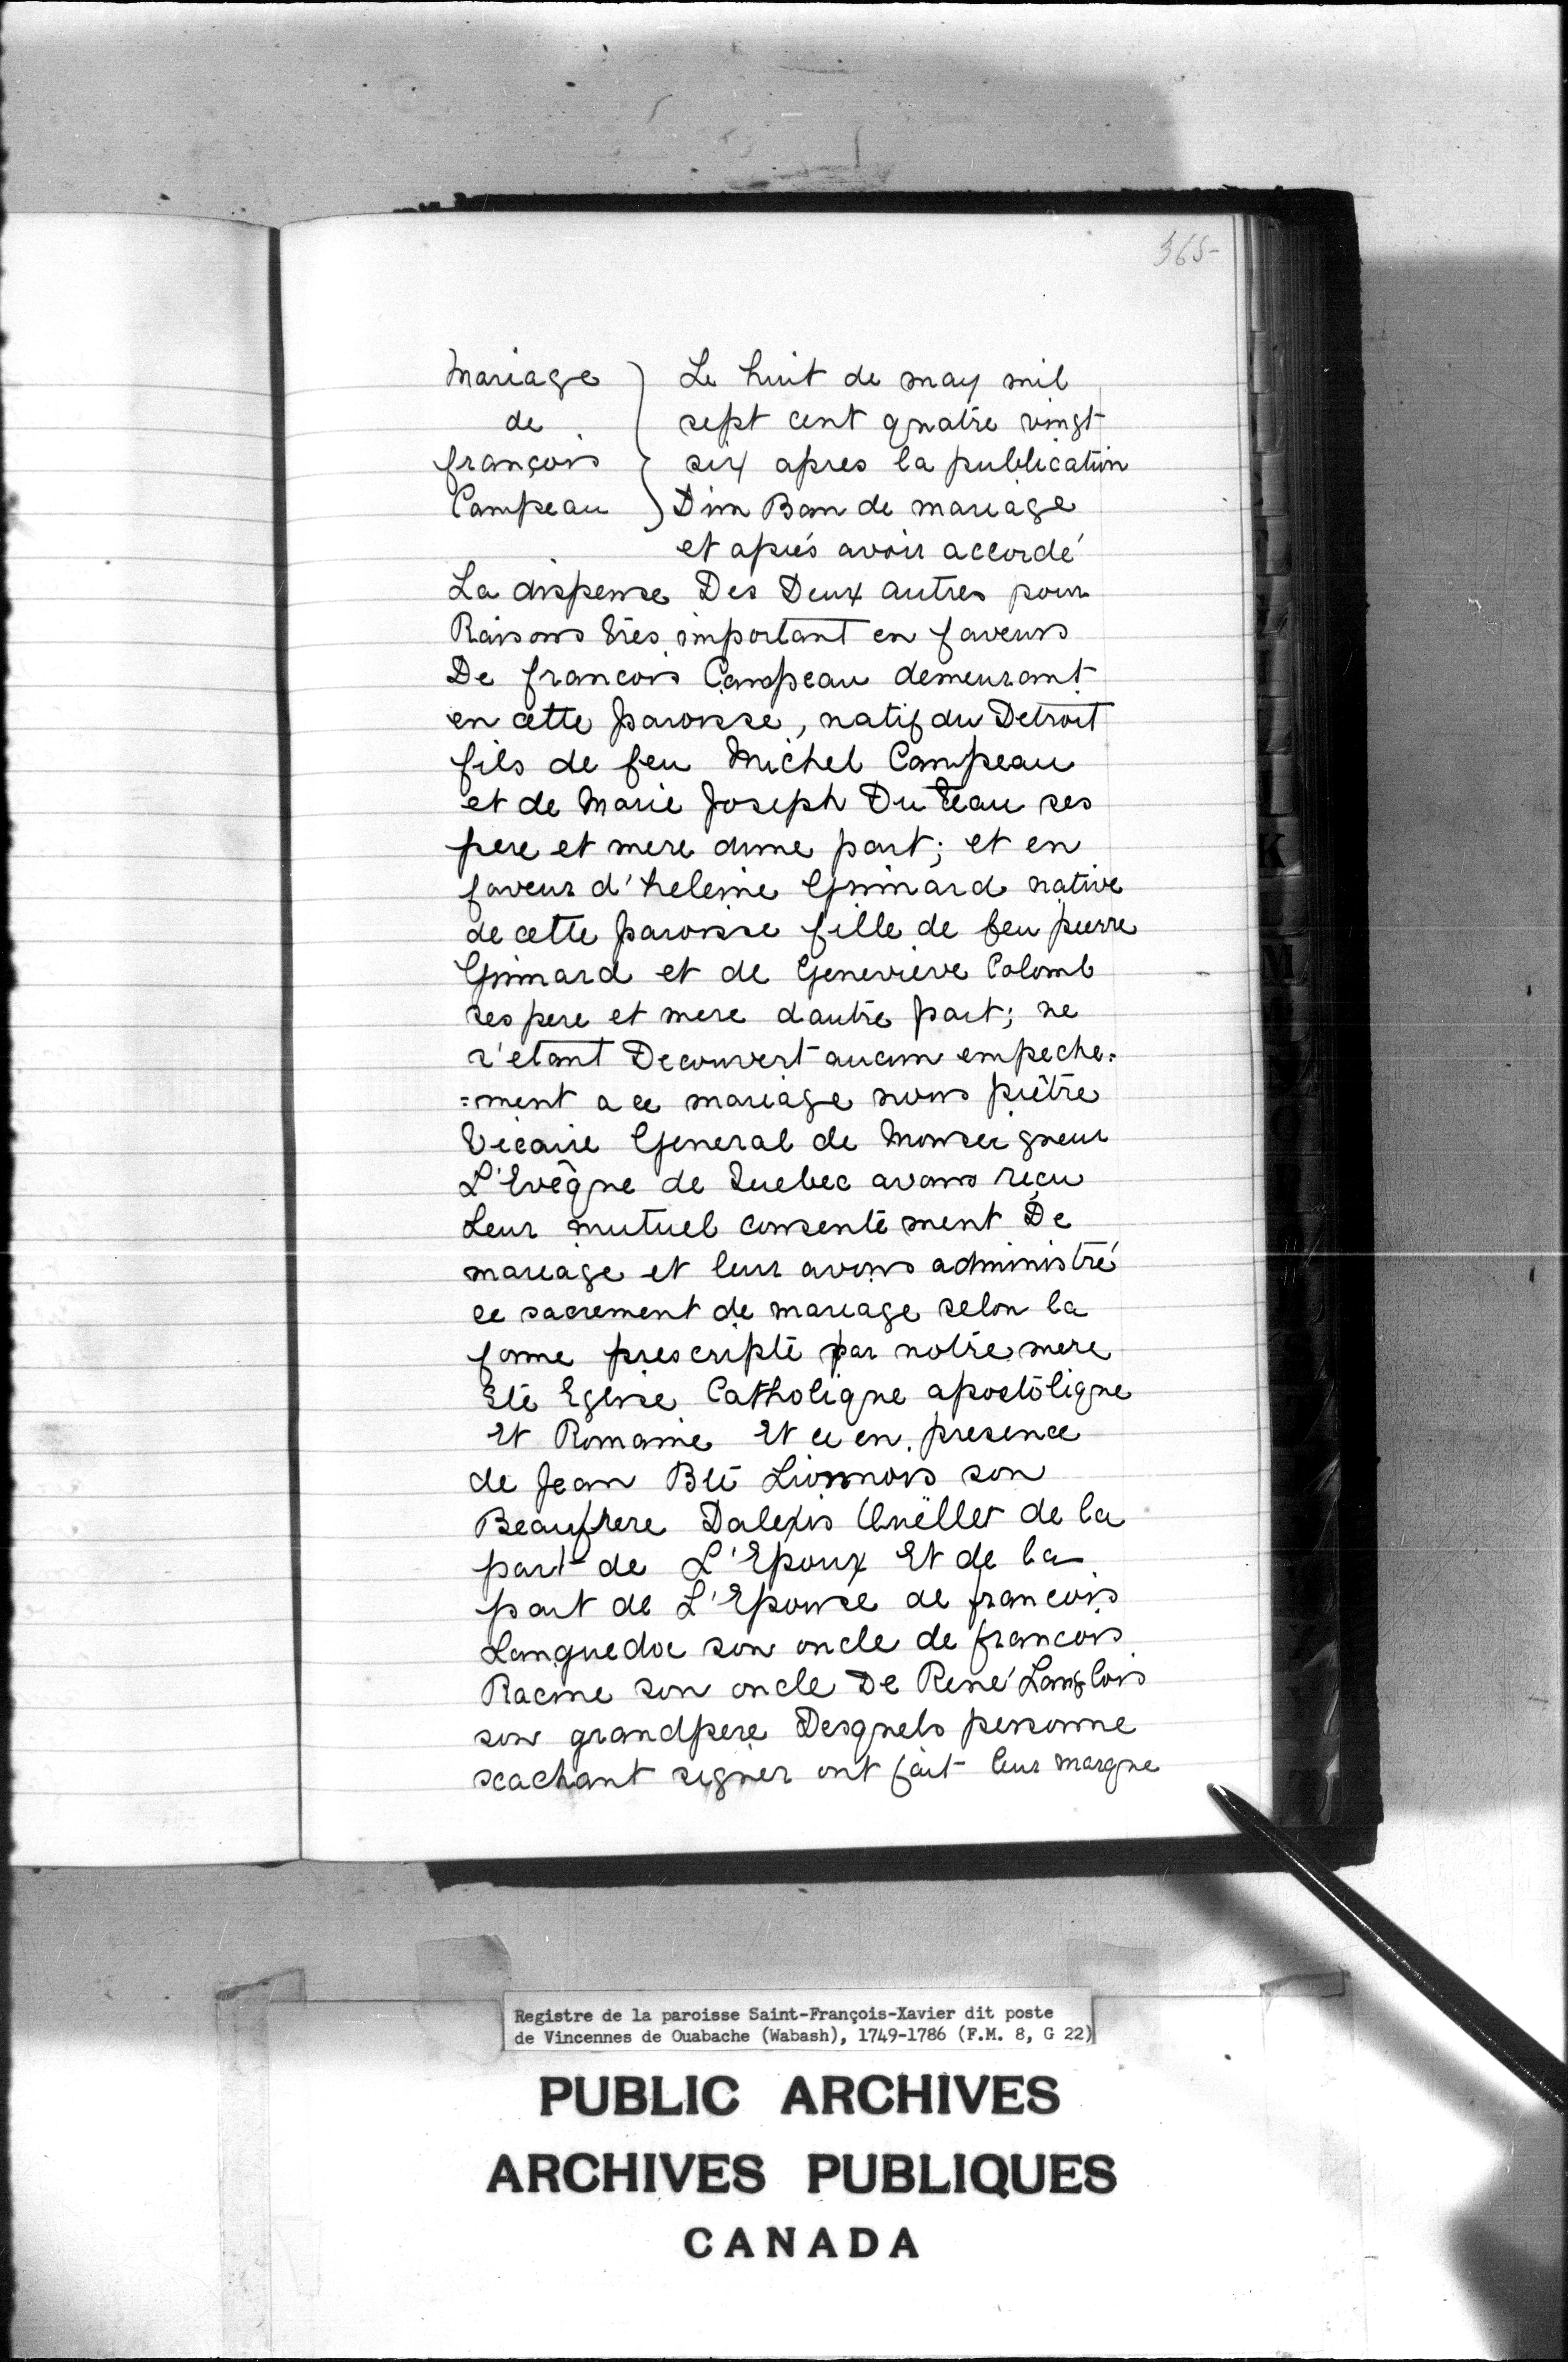 365-
Mariage
de
françois
Campeau
Le huit de may mil
sept cent quatre vingt
six apres la publication
D'un Ban de mariage
et aprés avoir accordé
La dispense Des Deux autres pour
Raisons très important en faveurs
De francois Campeau demeurant
en cette paroisse, natif du Detroit
fils de feu Michel Campeau
et de Marie Joseph Duteau ses
pere et mere dune part; et en
faveur d'heleine Grimard native
de cette paroisse fille de feu pierre
Grimard et de Genevieve Colomb
ses pere et mere dautre part; ne
s'etant Decouvert aucun empeche=
=ment a ce mariage nous prêtre
Vicaire General de Monseigneur
L'Evêque de Quebec avons reçu
Leur mutuel consentement De
mariage et leur avons administré
ce sacrement de mariage selon la
forme prescripte par notre mere
Ste Eglise Catholique apostolique
Et Romaine Et ce en presence
de Jean Bte Lionnois son
Beaufrere Dalexis Ouëllet de la
part de L'Epoux Et de la
part de L'Epouse de francois
Languedoc son oncle de francois
Racine son oncle De René Langlois
son grandpere Desquels personne
scachant signer ont fait leur marque
Registre de la paroisse Saint-François-Xavier dit poste
de Vincennes de Ouabache (Wabash), 1749-1786 (F.M. 8, G 22)
PUBLIC ARCHIVES
ARCHIVES PUBLIQUES
CANADA
K
M